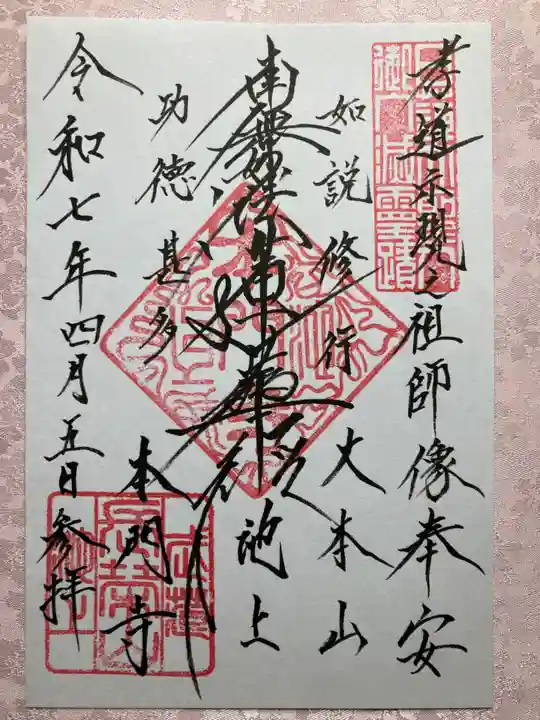 孝道示現之祖師像奉安
如説修行 大本山
南無妙法蓮華経
池上
功徳甚多 本門寺
令和七年四月五日参拝